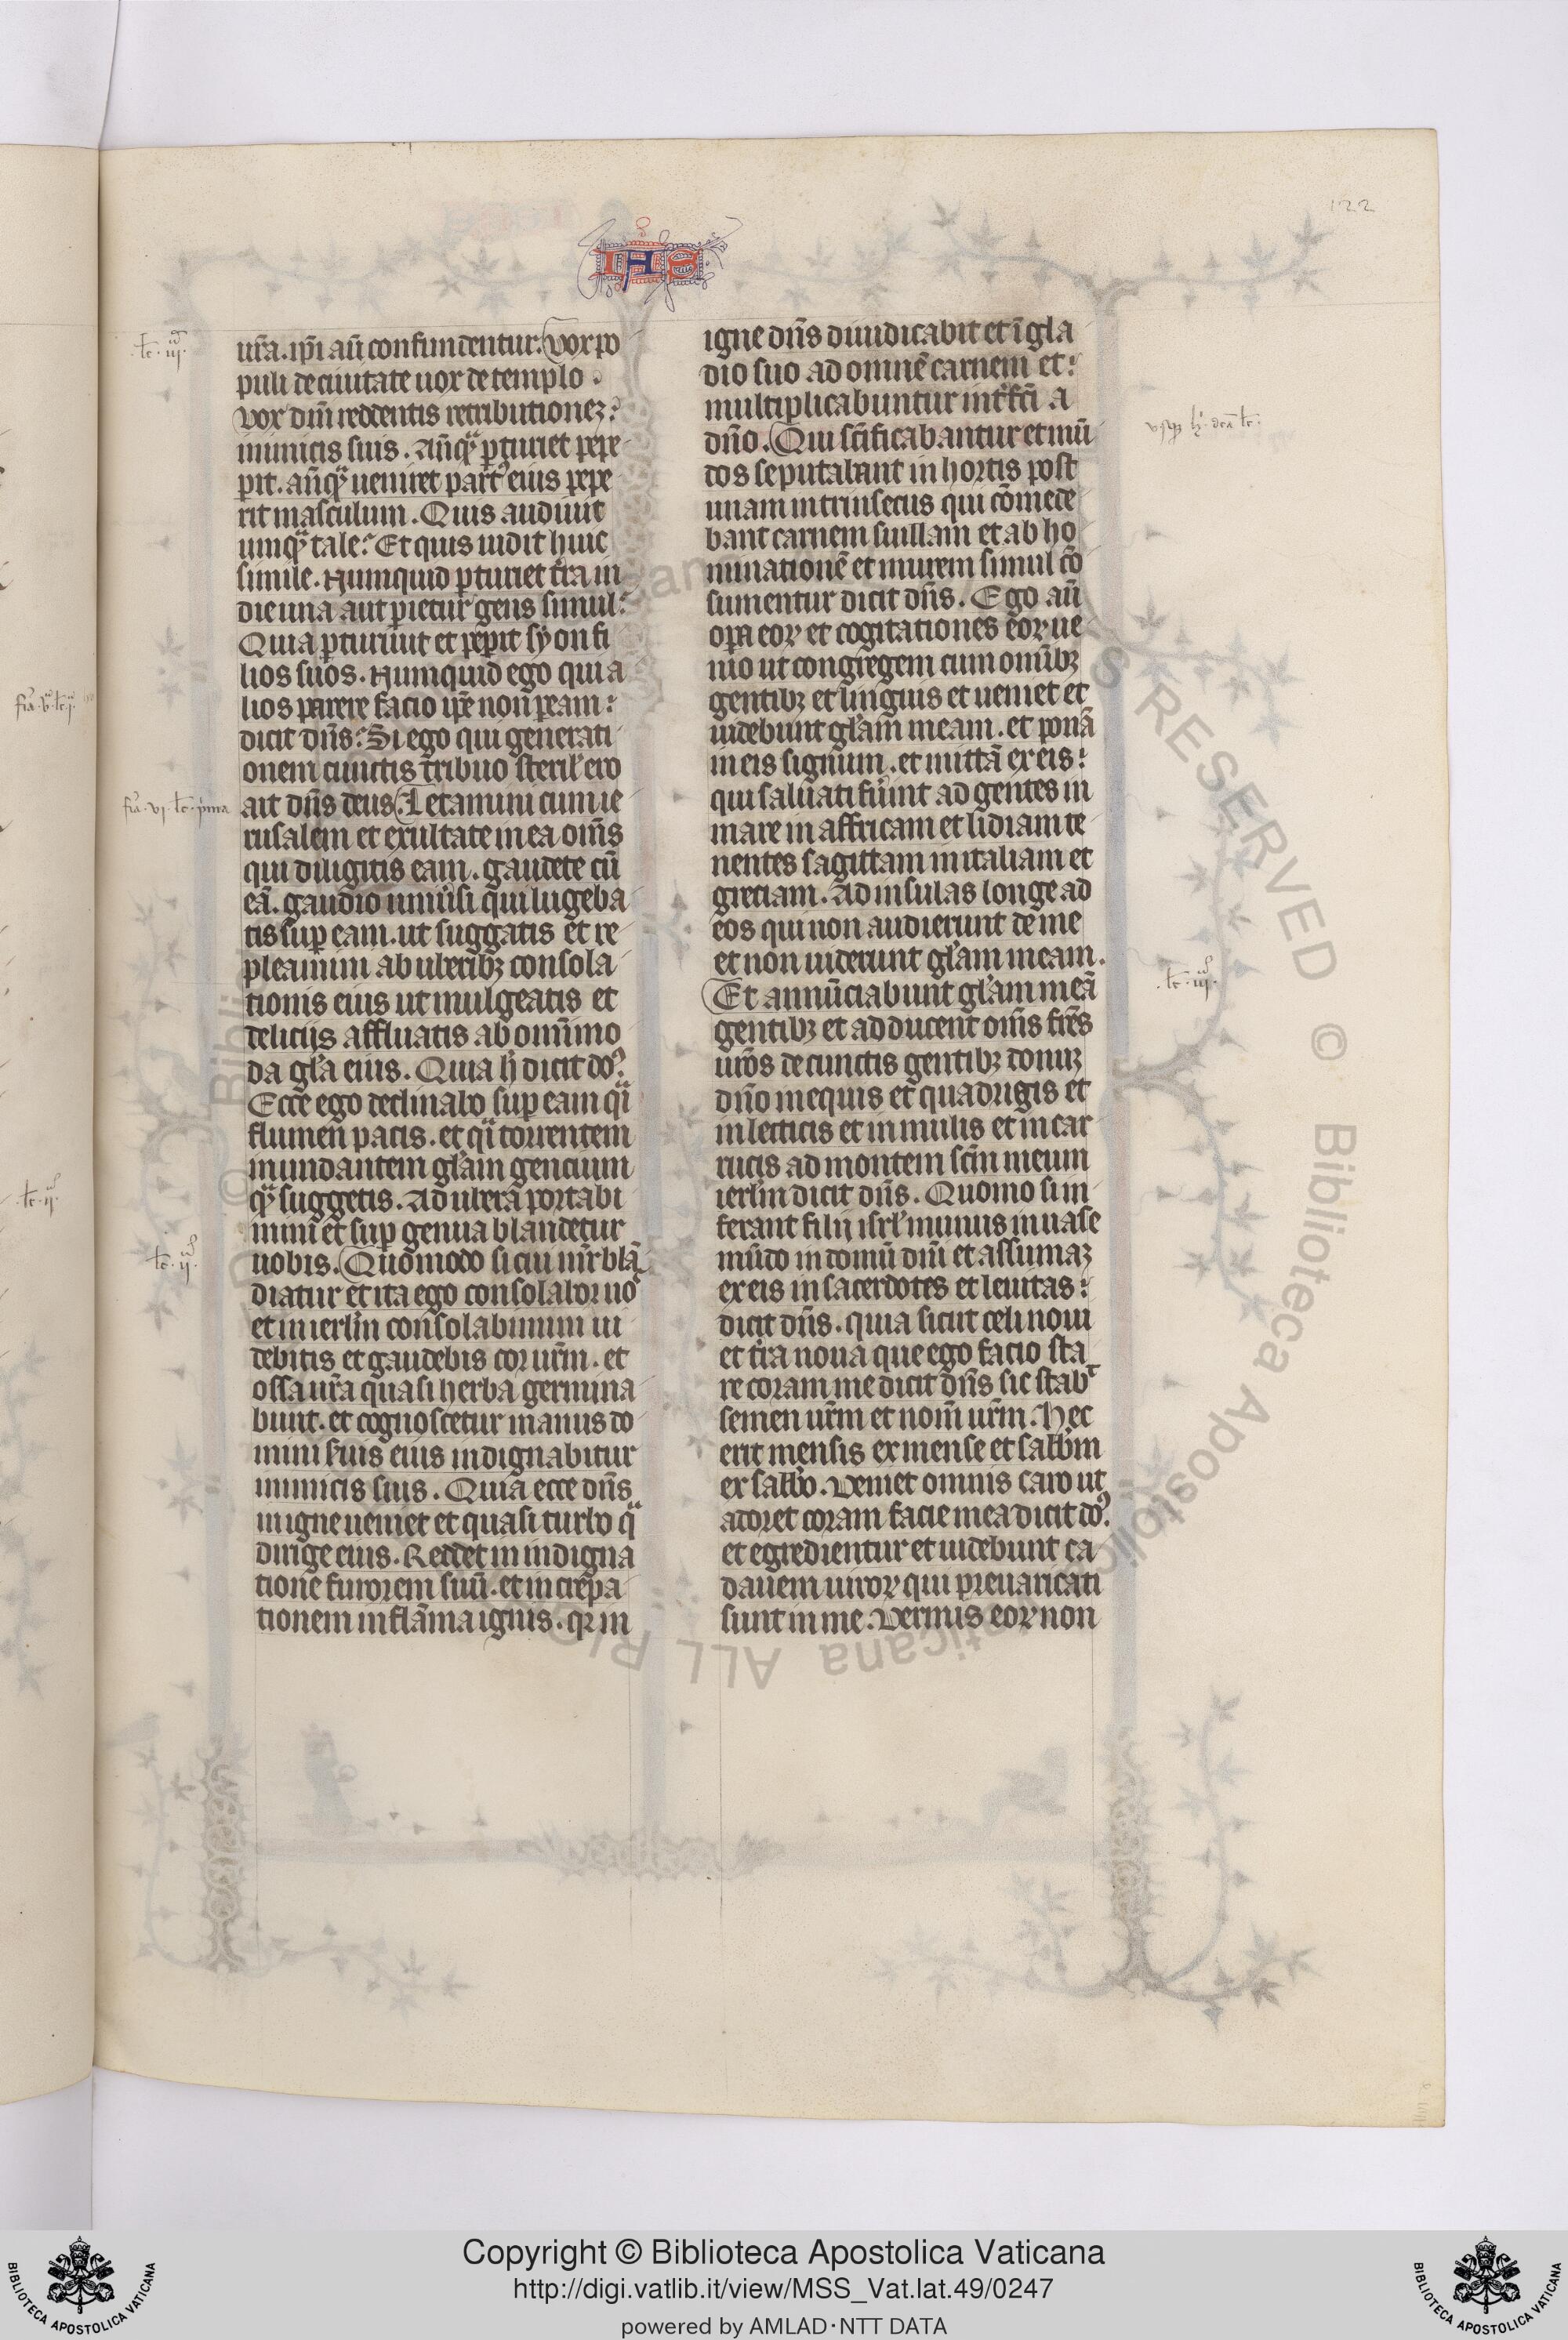 122
IHS
ur̃a. ip̃i aũ confundentur. Vox po
puli de ciuitate uox de templo.
vox dñi reddentis retributionez
inimicis suis. Anq̃ p̱turiet pepe
rit. anq̃ ueniret part᷒ eius pepe
rit masculum. Quis audiuit
umq̃ tale. Et quis uidit huic
simile. Numquid p̱turiet t̃ra in
die una aut p̱ietur gens simul.
Quia p̱turiuit et pep̱it syon fi
lios suos. Numquid ego qui a
lios parere facio ip̃e non p̱eam:
dicit dñs. Si ego qui generati
onem cunctis tribuo steril̃ ero
ait dñs deus. Letamini cum ie
rusalem et exultate in ea om̃s
qui diligitis eam. gaudete cũ
eã. gaudio uniũsi qui lugeba
tis sup̱ eam. ut suggatis et re
pleamini ab uberibꝫ consola
tionis eius ut mulgeatis et
deliciis affluatis ab omĩmo
da gl̃a eius. Quia h̃ dicit do᷒.
Ecce ego declinabo sup̱ eam q̃i
flumen pacis. et q̃i torrentem
inundantem gl̃am gencium
q̃ suggetis. Ad ubera portabi
mini et sup̱ genua blandetur
uobis. Quomodo si cui mr̃ blã
diatur et ita ego consolabor uo᷒
et in ierl̃m consolabimini ui
debitis et gaudebis cor ur̃m. et
ossa ur̃a quasi herba germina
bunt. et cognoscetur manus do
mini suis eius indignabitur
inimicis suis. Quia ecce dñs
in igne ueniet et quasi turbo q̃
drige eius. Reddet in indigna
tione furorem suũ. et increpa
tionem in flãma ignis. qꝛ in
igne dñs diiudicabit et ĩ gla
dio suo ad omnẽ carnem et:
multiplicabuntur int̃fc̃i a
dño. Qui sc̃ificabantur et mũ
dos se putabant in hortis post
unam intrinsecus qui cõmede
bant carnem suillam et ab ho
minationẽ et murem simul cõ
sumentur dicit dñs. Ego aũ
op̱a eoꝝ et cogitationes eoꝝ ue
nio ut congregem cum omĩbꝫ
gentibꝫ et linguis et uenient et
uidebunt gl̃am meam. et ponã
in eis signum. et mittã ex eis:
qui saluati fũint ad gentes in
mare in affricam et lidiam te
nentes sagittam in italiam et
greciam. Ad insulas longe ad
eos qui non audierunt de me
et non uiderunt gl̃am meam.
Et annũciabunt gl̃am meã
gentibꝫ et adducent om̃s fr̃es
ur̃os de cunctis gentibꝫ donuꝫ
dño in equis et quadrigis et
in lecticis et in mulis et in car
rucis ad montem sc̃m meum
ierl̃m dicit dñs. Quomo si in
ferant filij isrl̃ munus in uase
mũdo in domũ dñi et assumaꝫ
ex eis in sacerdotes et leuitas:
dicit dñs. quia sicut celi noui
et t̃ra noua que ego facio sta
re coram me dicit dñs sic stabᵗ
semen ur̃m et nom̃ ur̃m. Hec
erit mensis ex mense et sabb̃m
ex sabb̃o. Veniet omnis caro ut
adoret coram facie mea dicit do᷒.
et egredientur et uidebunt ca
dauem uiroꝝ qui preuaricati
sunt in me. Vermis eoꝝ non
lc̃. iij.
fr̃ia. vj. lc̃. p̃ima
lc̃. ij.
lc̃. iij.
Copyright © Biblioteca Apostolica Vaticana
http://digi.vatlib.it/view/MSS_Vat.lat.49/0247
powered by AMLAD·NTT DATA
BIBLIOTECA APOSTOLICA VATICANA
BIBLIOTECA APOSTOLICA VATICANA